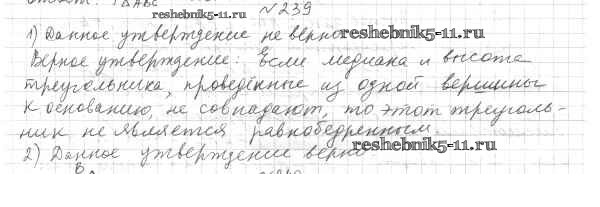 △ABC
reshebnik5-11.ru
№239
1) Данное утверждение не верно
reshebnik5-11.ru
Верное утверждение: Если медиана и высота
треугольника, проведённые из одной вершины
к основанию, не совпадают, то этот треуголь-
ник не является равнобедренным.
2) Данное утверждение верно
reshebnik5-11.ru
B